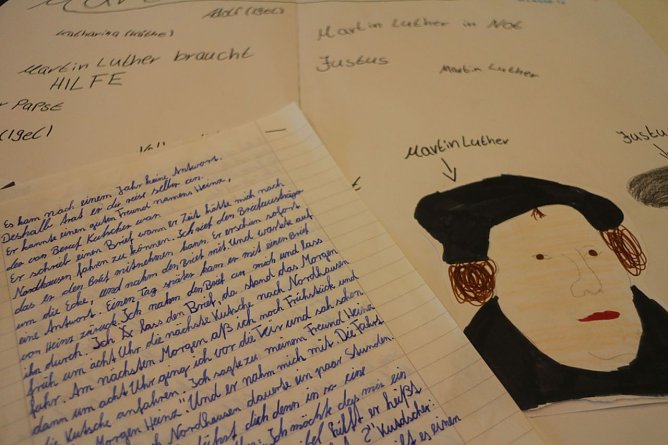 Adolf (Igel)
Katharina (Käthe)
Martin Luther braucht
HILFE
Papst
(Igel)
Martin Luther in Not
Justus
Martin Luther
Martin Luther
Justus
Es kam nach einem Jahr keine Antwort.
Deshalb trat er die reise selber an.
Er kannte einen guten Freund namens Heinz,
der von Beruf Kutscher war.
Er schrieb einen Brief wann er Zeit hätte mich nach
Nordhausen fahren zu können. Ich rief den Briefausträger
das er den Brief mitnehmen kann. Er erschien sofort
um die Ecke, und nahm den Brief mit. Und wartete auf
eine Antwort. Einen Tag später kam er mit einen Brief
von Heinz zurück. Ich nahm den Brief an mich und lass
ihn durch. Ich lass den Brief, da stand das Morgen
früh um acht Uhr die nächste Kutsche nach Nordhausen
fahr. Am nächsten Morgen aß ich noch Frühstück und
dann um acht Uhr ging ich vor die Tür und sah schon
die Kutsche anfahren. Ich sagte zu meinem Freund Heinz
Morgen Heinz. Und er nahm mich mit. Die Fahrt
nach Nordhausen dauerte ein paar Stunden.
dich denn in so eine
Ich möchte das mir ein
hilft er heißt
Kutscher:
es einen